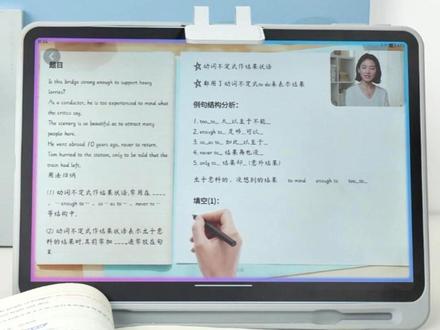 题目
Is this bridge strong enough to support heavy
lorries?
As a conductor, he is too experienced to mind what
the critics say.
The scenery is so beautiful as to attract many
people here.
He went abroad 10 years ago, never to return.
Tom hurried to the station, only to be told that the
train had left.
用法归纳
(1) 动词不定式作结果状语,常用在
enough to so as to never to
等结构中.
(2) 动词不定式作结果状语表示出乎意
料的结果时,其前常加 通常放在句
末
动词不定式作结果状语
都用了动词不定式to do来表示结果
例句结构分析:
1. too_to_ 太_以至于不能_
2. enough to_ 足够_可以_
3. so_as to_ 如此_以至于_
4. never to_ 结果再也没_
5. only to_ 结果却_(意外结果)
出乎意料的、没想到的结果 to mind enough to too_to_
填空(1):